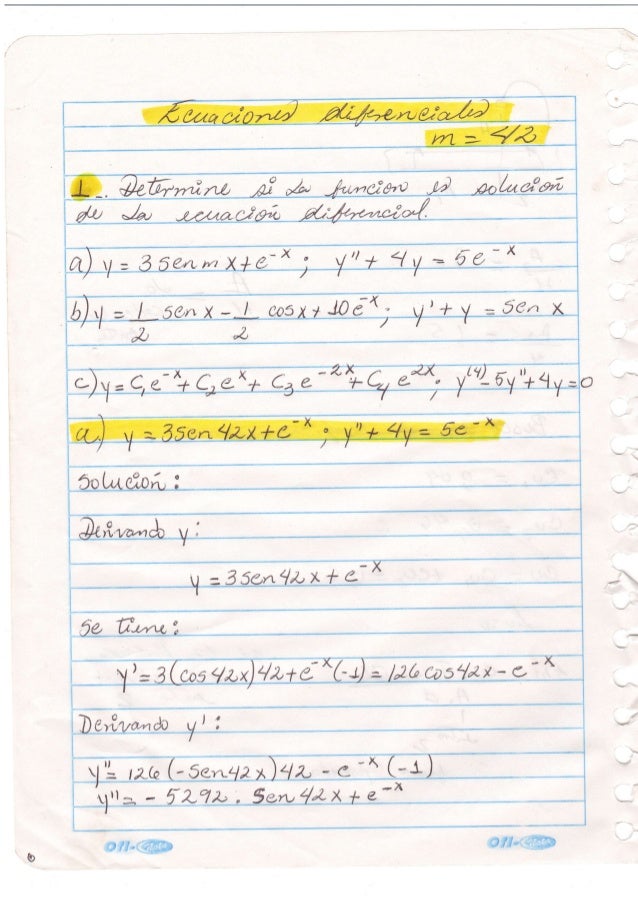 Ecuaciones diferenciales
m = 42
1.. Determine si la funcion es solución
de la ecuación diferencial.
a) y = 3 sen m x + e^-x ; y" + 4y = 5e^-x
b) y = 1/2 sen x - 1/2 cos x + 10 e^-x ; y' + y = sen x
c) y = C₁e^-x + C₂e^x + C₃e^-2x + C₄e^2x ; y^(4) - 5y" + 4y = 0
a.) y = 3sen 42x + e^-x ; y" + 4y = 5e^-x
Solución :
Derivando y :
y = 3 sen 42 x + e^-x
Se tiene :
y' = 3 (cos 42x) 42 + e^-x (-1) = 126 cos 42x - e^-x
Derivando y' :
y" = 126 (-sen 42x) 42 - e^-x (-1)
y" = - 5292 . Sen 42 x + e^-x
011-Globe 011-Globe